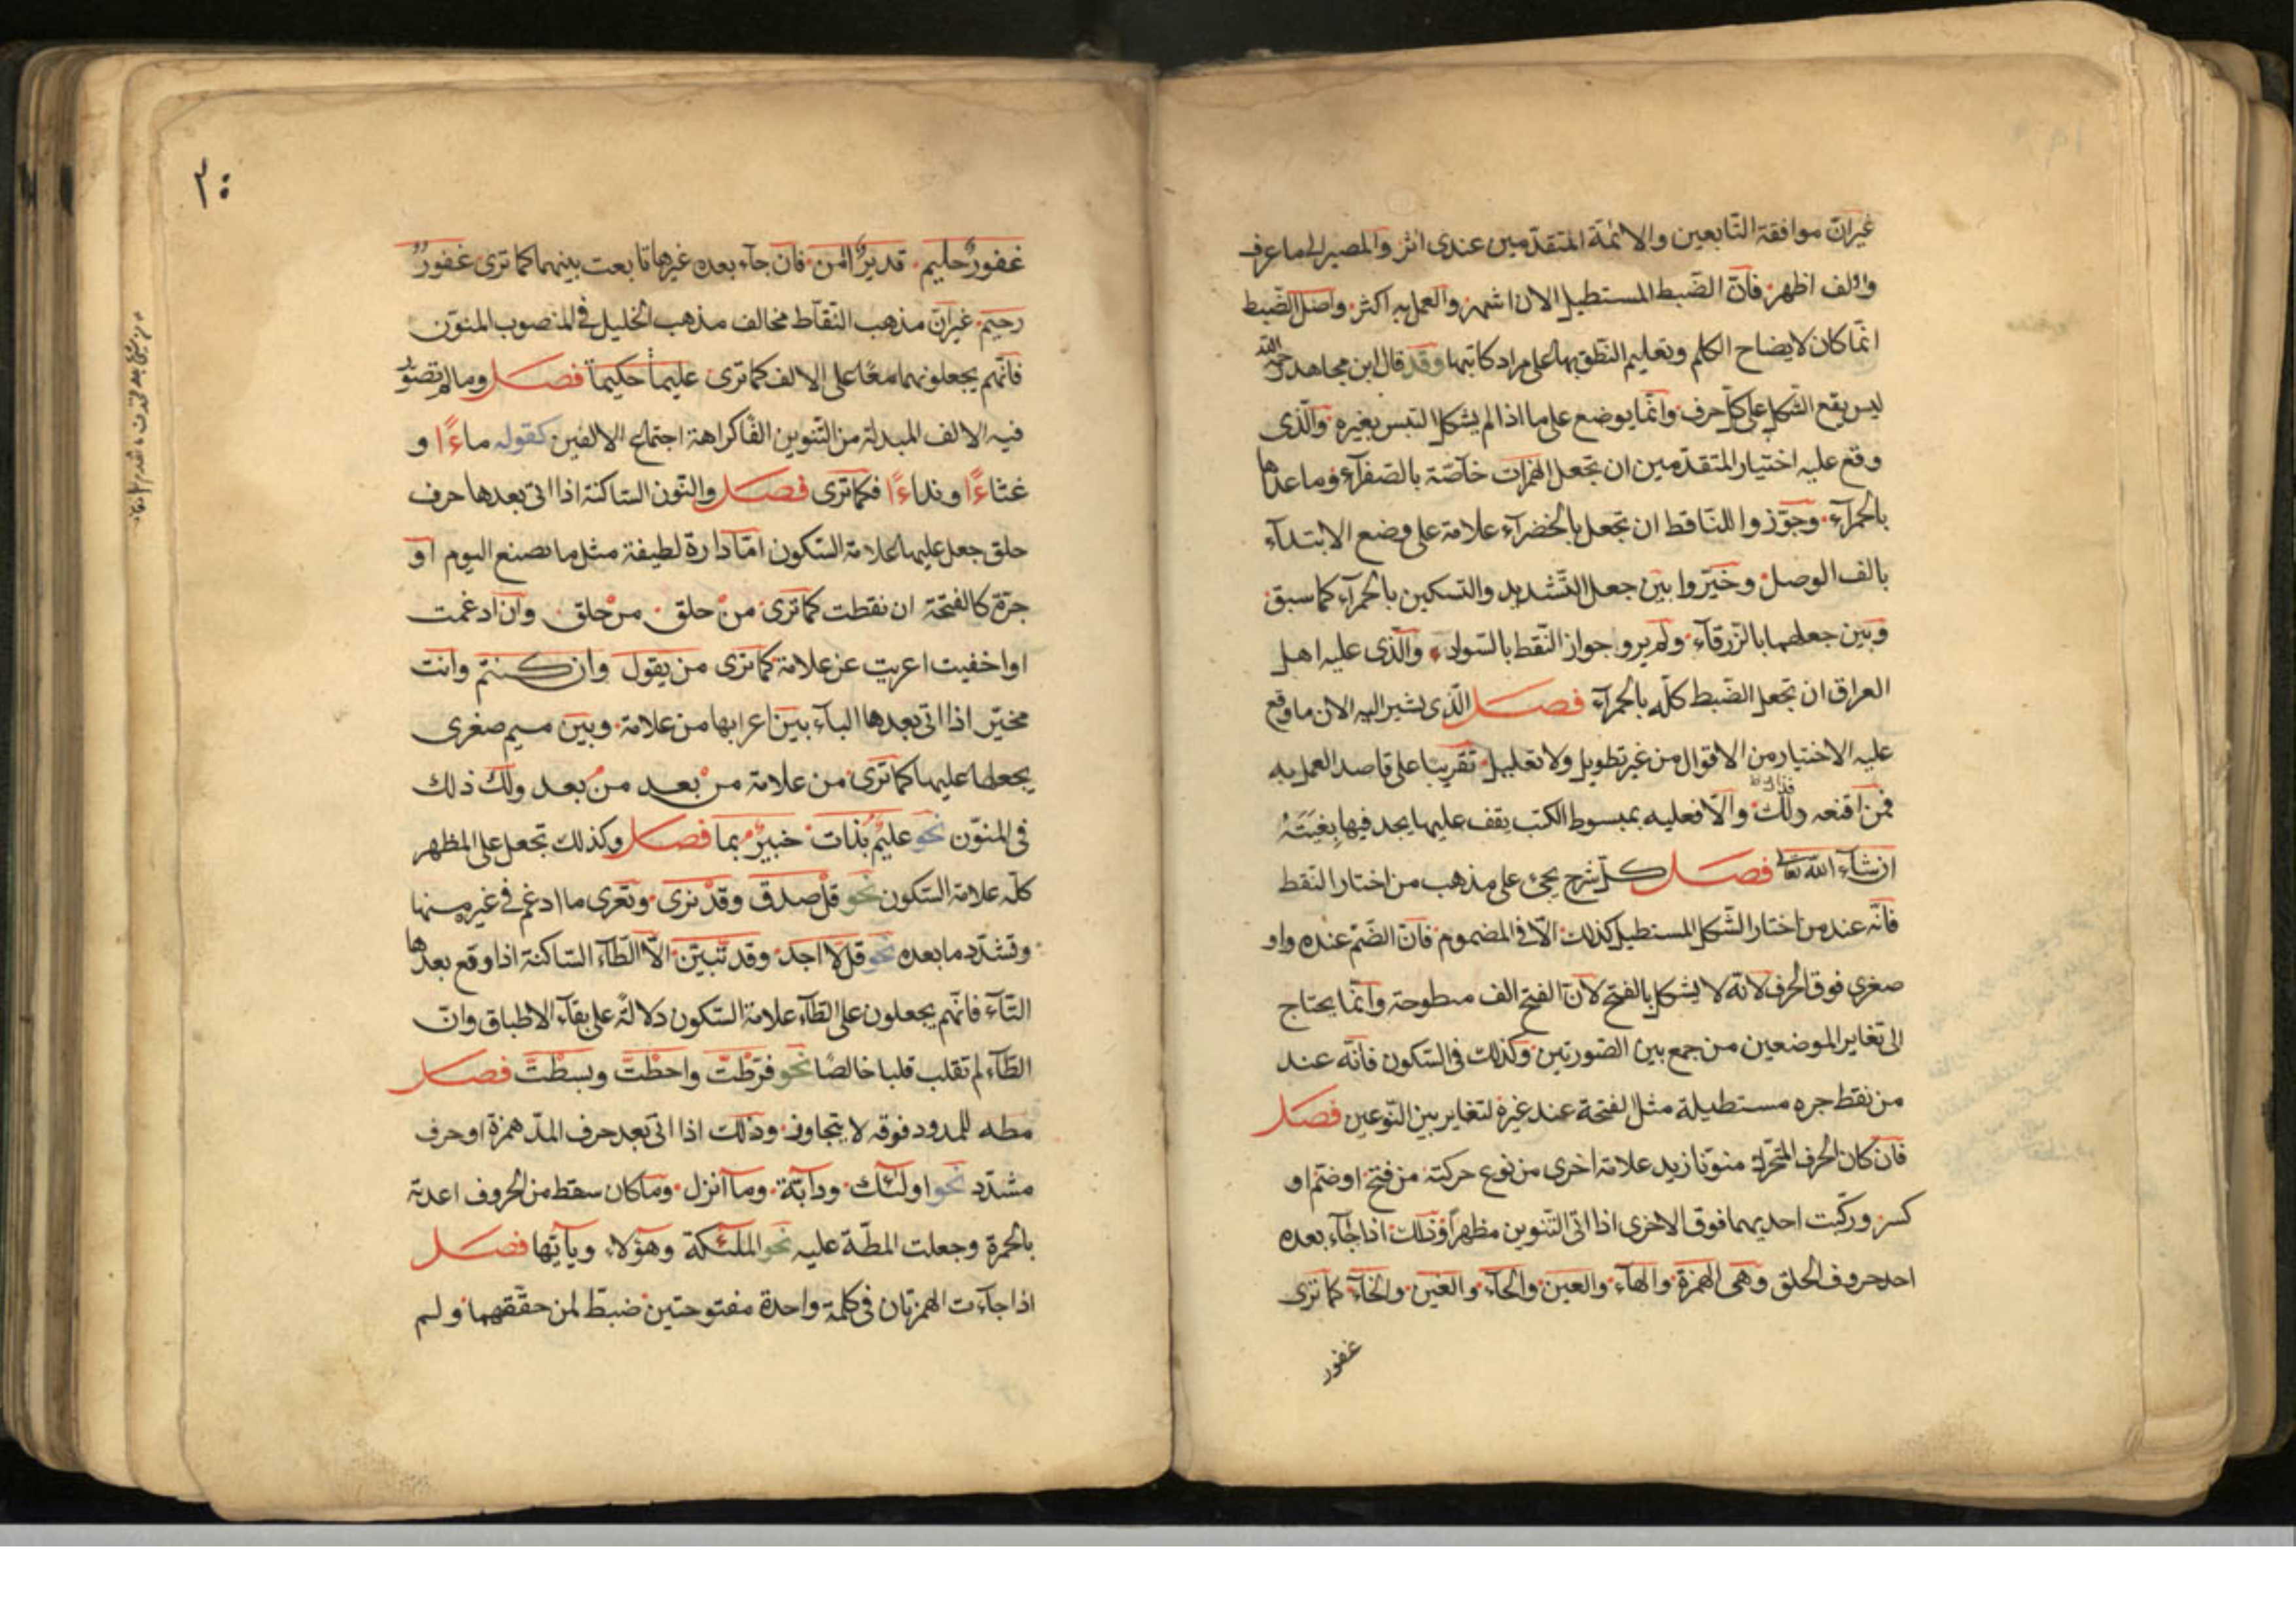 غيرانّ موافقة التّابعين والائمّة المتقدّمين عندى اثر والمصير الى ما عرف
والف اظهر فانّ الضّبط المستطيل الان اشهر والعمل به اكثر واصل الضّبط
انّما كان لايضاح الكلم وتعليم النّطق بها على مراد كاتبها وقد قال ابن مجاهد رحمه اللّه
ليس يقع الشّكل على كلّ حرف وانّما يوضع على ما اذا لم يشكل التبس بغيره والّذى
وقع عليه اختيار المتقدّمين ان تجعل الهمزات خاصّة بالصّفرآء وما عداها
بالحمرآء وجوّزوا للنّاقط ان تجعل بالخضرآء علامة على وضع الابتدآء
بالف الوصل وخيّروا بين جعل التّشديد والتسكين بالحمرآء كما سبق
وبين جعلهما بالزّرقآء ولم يروا جواز النّقط بالسّواد والّذى عليه اهل
العراق ان تجعل الضّبط كلّه بالحمرآء فصل الّذى نشير اليه الان ما وقع
عليه الاختيار من الاقوال من غير تطويل ولا تعليل تقريبا على قاصد العمل به
فمن اقنعه ذلك والّا فعليه بمبسوط الكتب يقف عليها يجد فيها بغيته
ان شآء اللّه تعالى فصل كلّ شرح يجئ على مذهب من اختار النّقط
فانّه عند من اختار الشّكل المستطيل كذلك الّا فى المضموم فانّ الضّمّ عنده واو
صغرى فوق الحرف لانّه لا يشكل بالفتح لانّ الفتح الف مبطوحة وانّما يحتاج
الى تغاير الموضعين من جمع بين الصّورتين وكذلك فى السّكون فانّه عند
من نقط جره مستطيلة مثل الفتحة عند غيره لتغاير بين النّوعين فصل
فان كان الحرف المتحرّك منوّنا زيد علامة اخرى من نوع حركته من فتح اوضمّ او
كسر وركّبت احديهما فوق الاخرى اذا اتى التّنوين مظهراً وذلك اذا جآء بعده
احد حروف الحلق وهى الهمزة والهآء والعين والحآء والغين والخآء كما ترى
غفور
٢٠
غفورٌ حليم قديرٌ المن فان جآء بعده غيرها تابعت بينهما كما ترى غفورٌ
رحيم غيرانّ مذهب النّقّاط مخالف مذهب الخليل فى المنصوب المنوّن
فانّهم يجعلونهما معًا على الالف كما ترى عليماً حكيماً فصل وما لم تصوّر
فيه الالف المبدلة من التّنوين الفًا كراهة اجتماع الالفين كقوله ماءًا و
غثاءًا ونداءًا فكما ترى فصل والنّون السّاكنة اذا اتى بعدها حرف
حلق جعل عليها علامة السّكون امّا دارة لطيفة مثل ما نصنع اليوم او
جرّة كالفتحة ان نقطت كما ترى منْ حلق من حلق وان ادغمت
او اخفيت اعريت عن علامة كما ترى من يقول وان كنتم وانت
مخيّر اذا اتى بعدها البآء بين اعرابها من علامة وبين ميم صغرى
يجعلها عليها كما ترى من علامة من بعد من بعد ولك ذلك
فى المنوّن نحو عليمٌ بذات خبيرٌ بما فصل وكذلك تجعل على المظهر
كلّه علامة السّكون نحو قلْ صدق وقدْ نرى وتعرى ما ادغم فى غيره منها
وتشدّد ما بعده نحو قل لّا اجد وقد تّبيّن الّا الطّآء السّاكنة اذا وقع بعدها
التّآء فانّهم يجعلون على الطّآء علامة السّكون دلالةً على بقآء الاطباق وانّ
الطّآء لم تقلب قلبا خالصًا نحو فرّطْتّ واحطْتّ وبسطْتّ فصل
مطه للمدود فوقه لا يتجاوز وذلك اذا اتى بعد حرف المدّ همزة او حرف
مشدّد نحو اولٓئك ودآبّة ومآ انزل وما كان سقط من الحروف اعدته
بالحمرة وجعلت المطّة عليه نحو الملٓئكة وهٓؤلاء ويٓأيّها فصل
اذا جآءت الهمزتان فى كلمة واحدة مفتوحتين ضبطّ لمن حقّقهما ولم